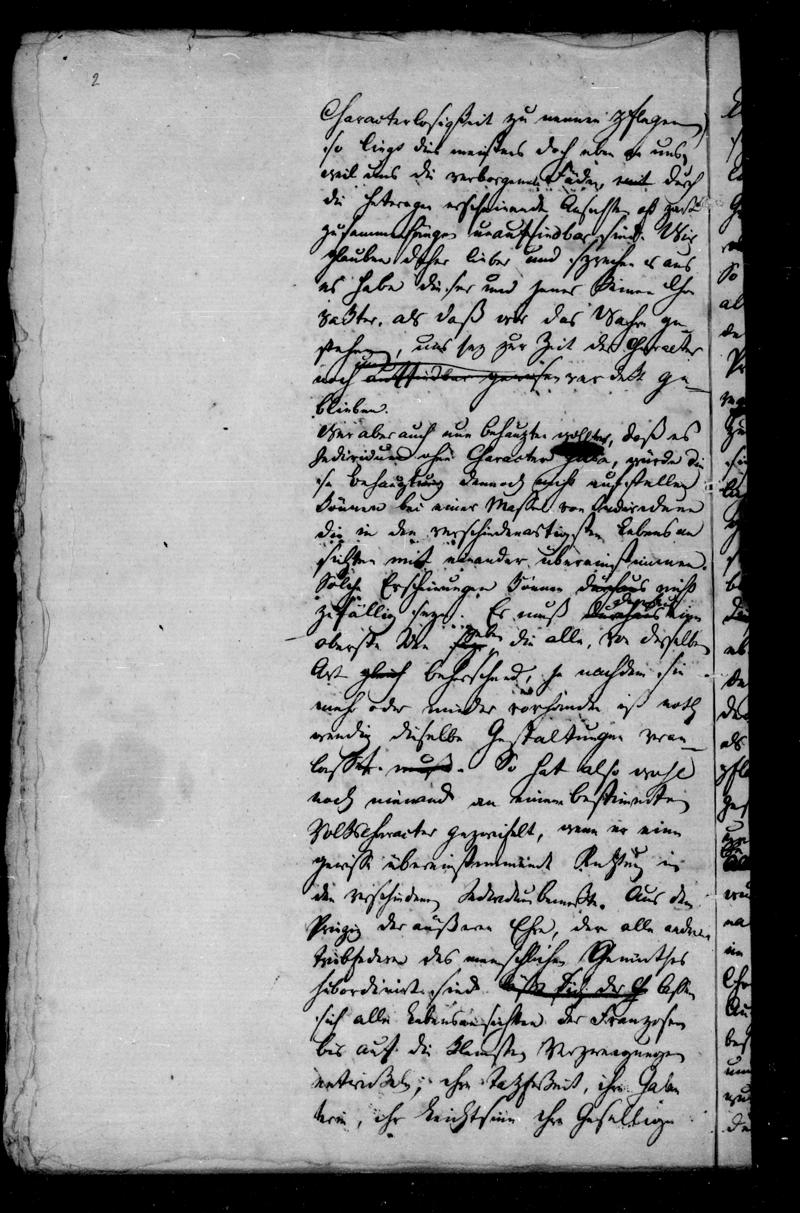 2
Characterlosigkeit zu nennen pflegen,
so liegt dies meistens doch eben an uns,
weil uns die verborgenen Fäden, mit durch
die heterogen erscheinende Ansichten oft ganz
zusammenhängen unauffindbar sind. Wir
glauben daher lieber und sprechen es aus
es habe dieser und jener keinen Cha
rakter, als daß wir das Wahre ge-
stehen, uns sey zur Zeit der Character
noch verdeckt ge-
blieben.
Wer aber auch nun behaupten wollte, daß es
Individuen ohne Character gäbe, würde die
se Behauptung dennoch nicht aufstellen
können bei einer Masse von Individuen
die in den verschiedenartigsten Lebensan
sichten mit einander übereinstimmen.
Solche Erscheinungen können durchaus nicht
zufällig seyn. Es muß durchaus eine
oberste Idee geben die alle, von derselben
Art gleich beherrschend, je nachdem sie
mehr oder minder vorhanden ist noth
wendig dieselbe Gestaltungen veran-
lasset. muß. So hat also wohl
noch niemand an einem bestimmten
Volkscharacter gezweifelt, wenn er eine
gewisse übereinstimmende Richtung in
den verschiedenen Individuen bemerkte. Aus dem
Prinzip der äußeren Ehre, der alle andren
Triebfedern des menschlichen Gemüthes
subordinirt sind läßt sich der lassen
sich alle Lebensansichten der Franzosen
bis auf die kleinsten Verzweigungen
entwickeln; ihre Tapferkeit, ihre Galan
terie, ihr Leichtsinn ihre Gesellige